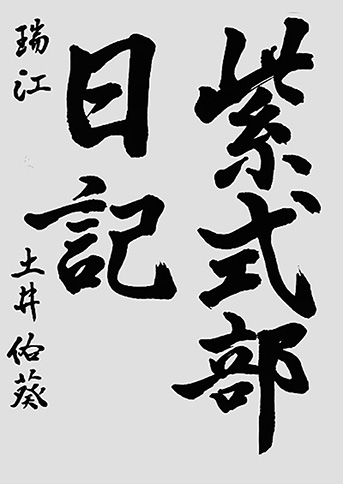 紫式部
日記
瑞江 土井佑葵